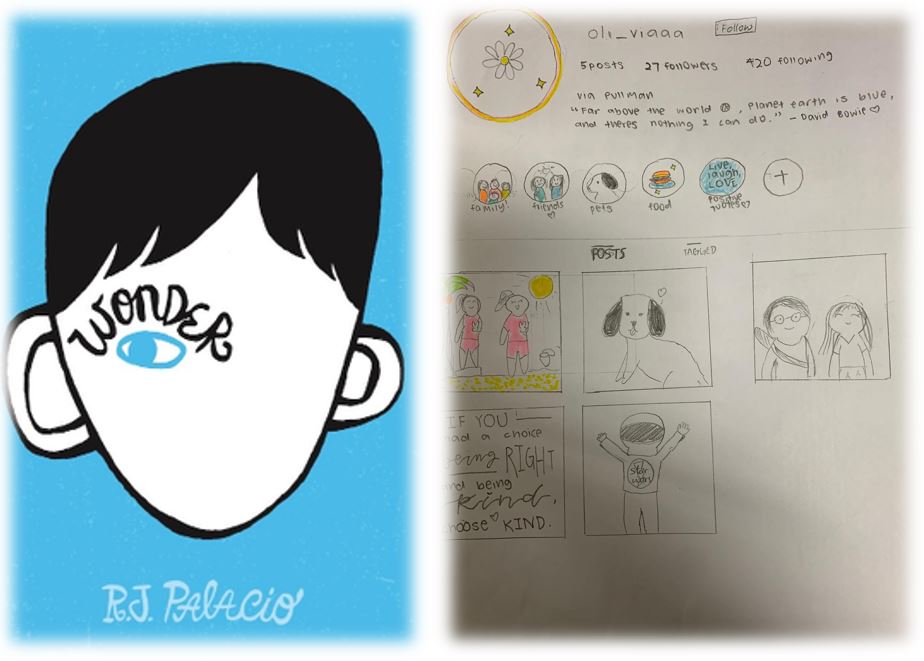 WONDER
R.J. PALACIO
oli_viaaa Follow
5 posts 27 followers 420 following
via pullman
"Far above the world , Planet earth is blue,
and theres nothing I can do." - David Bowie
family! friends pets food Live, laugh, LOVE
positive quotes
POSTS TAGGED
IF YOU
had a choice
being RIGHT
and being
kind,
choose KIND.
star wars